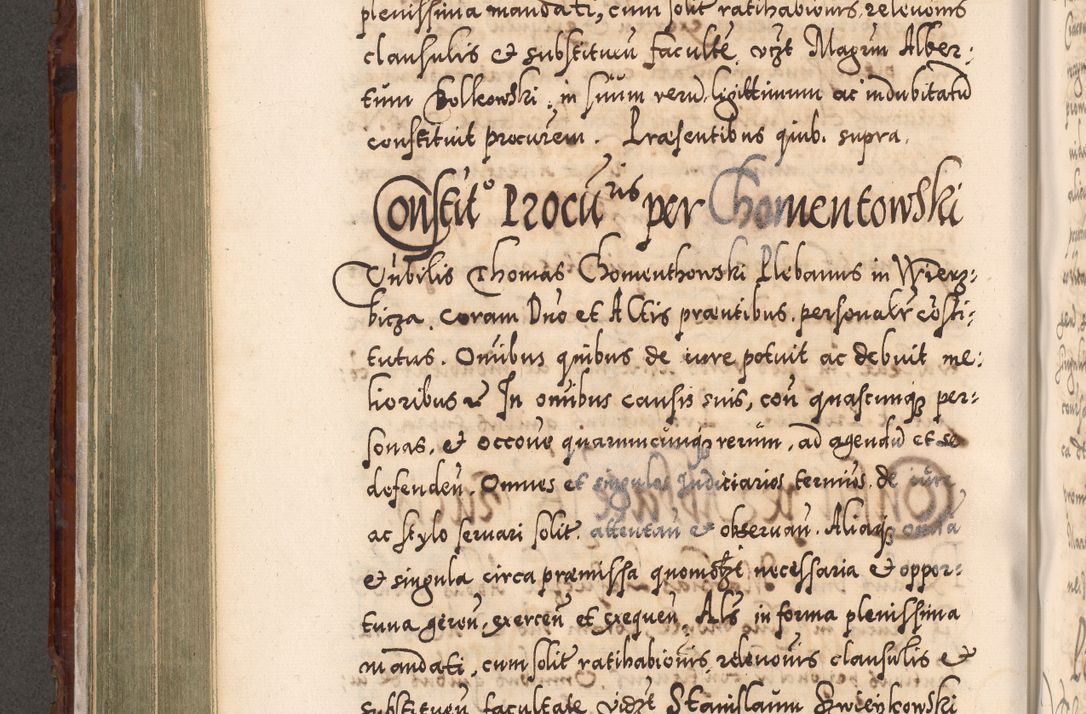 plenissima mandati, cum solit ratihabionis, relevonis
clausulis et substituen facultẽ, vczt Magrum Alber:
tum Bolkowski, in suum verũ, ligittimum ac indubitatũ
constituit procurem. Præsentibus quib. supra.
Constito Procuris per Chomentowski
Nubilis Thomas Chomenthowski Plebanus in Wierz:
bicza, coram Dno et Actis præntibus, personalr cõsti:
tutus. Omnibus quibus de iure potuit ac debuit me:
lioribus In omnibus causis suis, con quascunq per:
sonas, et occone quarumcunq rerum, ad agendũ et se
defenden. Omnes et singulos Judiciarios terminos de iure
ac stylo servari solit. attentan et observan. Aliaq omnia
et singula circa præmissa quomolzt necessaria et oppor:
tuna geren, exercen et exequen, Als in forma plenissima
mandati, cum solit ratihabionis, relevonis clausulis et
substituen facultate videzt Stanislaum Swienkowski